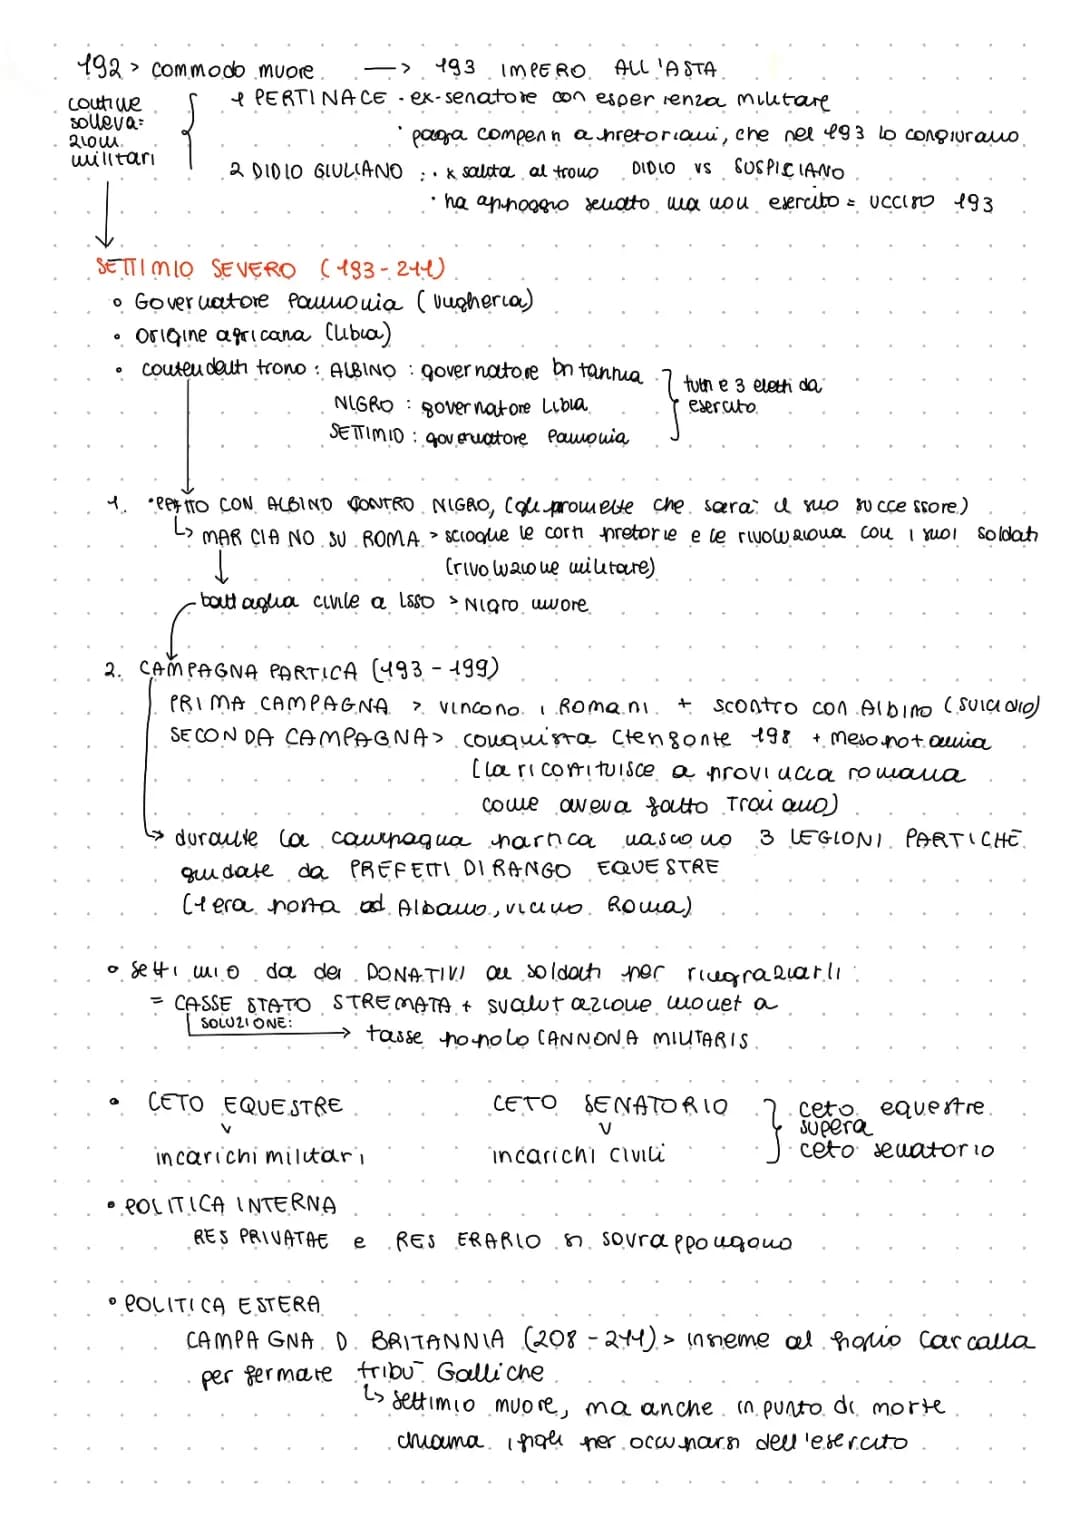 192 > commodo muore → 193 IMPERO ALL'ASTA
continue
solleva=
zioni
militari
1 PERTINACE · ex-senatore con esperienza militare
· paga compensi a pretoriani, che nel 193 lo congiurano
2 DIDIO GIULIANO : · x salita al trono DIDIO VS SUSPICIANO
· ha appoggio senato ma non esercito = UCCISO 193
SETTIMIO SEVERO (193-211)
• Governatore Pannonia (Ungheria)
• Origine africana (Libia)
• contendenti trono : ALBINO : governatore britannia
NIGRO : governatore Libia
SETTIMIO : governatore Pannonia
tutti e 3 eletti da
esercito
1. · PATTO CON ALBINO CONTRO NIGRO, (gli promette che sarà il suo successore)
↳ MARCIANO SU ROMA > scioglie le corti pretorie e le rivoluziona con i suoi soldati
(rivoluzione militare)
battaglia civile a Isso > Nigro muore
2. CAMPAGNA PARTICA (193-199)
PRIMA CAMPAGNA > vincono i Romani + scontro con Albino (suicidio)
SECONDA CAMPAGNA > conquista Ctensfonte 198 + Mesopotamia
(la ricostituisce a provincia romana
come aveva fatto Traiano)
→ durante la campagna partica nascono 3 LEGIONI PARTICHE
guidate da PREFETTI DI RANGO EQUESTRE
(1 era posta ad Albano, vicino Roma)
• Settimio da dei DONATIVI ai soldati per ringraziarli :
= CASSE STATO STREMATA + svalutazione moneta
SOLUZIONE: → tasse popolo (ANNONA MILITARIS
• CETO EQUESTRE CETO SENATORIO
incarichi militari incarichi civili
ceto equestre
supera
ceto senatorio
• POLITICA INTERNA
RES PRIVATAE e RES ERARIO si sovrappongono
• POLITICA ESTERA
CAMPAGNA D. BRITANNIA (208-211) > insieme al figlio Carcalla
per fermare tribù Galliche
↳ Settimio muore, ma anche in punto di morte
chiama i figli per occuparsi dell'esercito